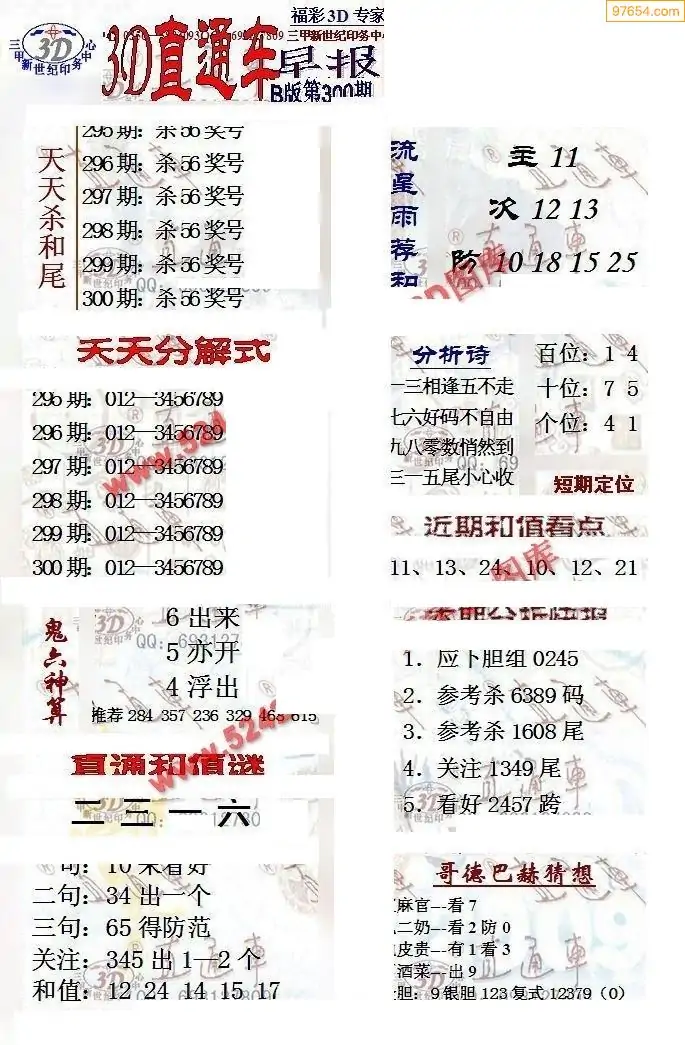 97654.com
福彩3D 专家
三甲新世纪印务中心
3D直通车
早报
B版第300期
天天杀和尾
295期：杀56奖号
296期：杀56奖号
297期：杀56奖号
298期：杀56奖号
299期：杀56奖号
300期：杀56奖号
流星雨荐和
主 11
次 12 13
防 10 18 15 25
天天分解式
295期：012—3456789
296期：012—3456789
297期：012—3456789
298期：012—3456789
299期：012—3456789
300期：012—3456789
分析诗
一三相逢五不走
七六好码不自由
九八零数悄然到
三一五尾小心收
百位：1 4
十位：7 5
个位：4 1
短期定位
近期和值看点
11、13、24、10、12、21
鬼六神算
6 出来
5 亦开
4 浮出
推荐 284 357 236 329 468 615
1．应下胆组 0245
2．参考杀 6389 码
3．参考杀 1608 尾
4．关注 1349 尾
5．看好 2457 跨
直通和值谜
二 三 一 六
句：10 来看好
二句：34 出一个
三句：65 得防范
关注：345 出 1—2 个
和值：12 24 14 15 17
哥德巴赫猜想
麻官---看 7
二奶---看 2 防 0
皮贵---有 1 看 3
酒菜---出 9
胆：9 银胆 123 复式 12379（0）